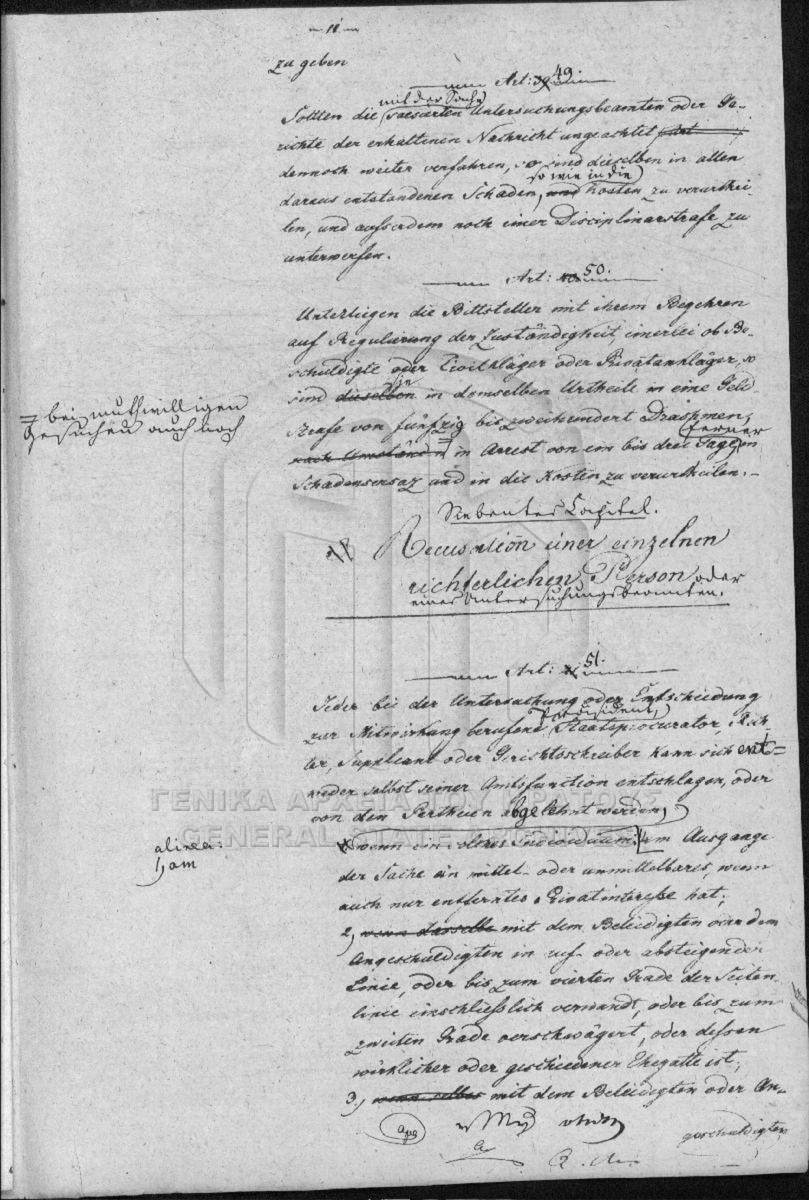 11
zu geben
Art: 49
mit der Sache
Sollten die saesirten Untersuchungsbeamten oder Ge-
richte der erhaltenen Nachricht ungeachtet
dennoch weiter verfahren, so sind dieselben in allen
so wie in die
daraus entstandenen Schaden, und Kosten zu verurthei-
len, und ausserdem noch einer Disciplinarstrafe zu
unterwerfen.
Art: 50.
Unterliegen die Bittsteller mit ihrem Begehren
auf Regulirung der Zuständigkeit, einerlei ob Be-
schuldigte oder Civilkläger oder Privatankläger, so
sie
sind dieselben in demselben Urtheile in eine Geld
= bei muthwilligen
Gesuchen auch noch
strafe von fünfzig bis zweihundert Drachmen,
ferner
nach Umständen = in Arrest von ein bis drei Tage, in
Schadensersaz und in die Kosten zu verurtheilen.
Siebentes Capitel.
Recusation einer einzelnen
richterlichen Person oder
eines Untersuchungsbeamten.
Art: 51.
Jeder bei der Untersuchung oder Entscheidung
Praesident,
zur Mitwirkung berufene Staatsprocurator, Rich
ter, Suppleant oder Gerichtsschreiber kann sich ent=
weder selbst seiner Amtsfunction entschlagen, oder
von den Partheien abgelehnt werden,
alinea:
1, am
wenn ein solches Individuum: am Ausgange
der Sache ein mittel- oder unmittelbares, wenn
auch nur entferntes Privatinteresse hat;
2, wenn dasselbe mit dem Beleidigten oder dem
Angeschuldigten in auf- oder absteigender
Linie, oder bis zum vierten Grade der Seiten
linie einschließlich verwandt, oder bis zum
zweiten Grade verschwägert, oder dessen
wirklicher oder geschiedener Ehegatte ist;
3, wenn selbes mit dem Beleidigten oder An-
geschuldigten
ΓΕΝΙΚΑ ΑΡΧΕΙΑ ΤΟΥ ΚΡΑΤΟΥΣ
GENERAL STATE ARCHIVES